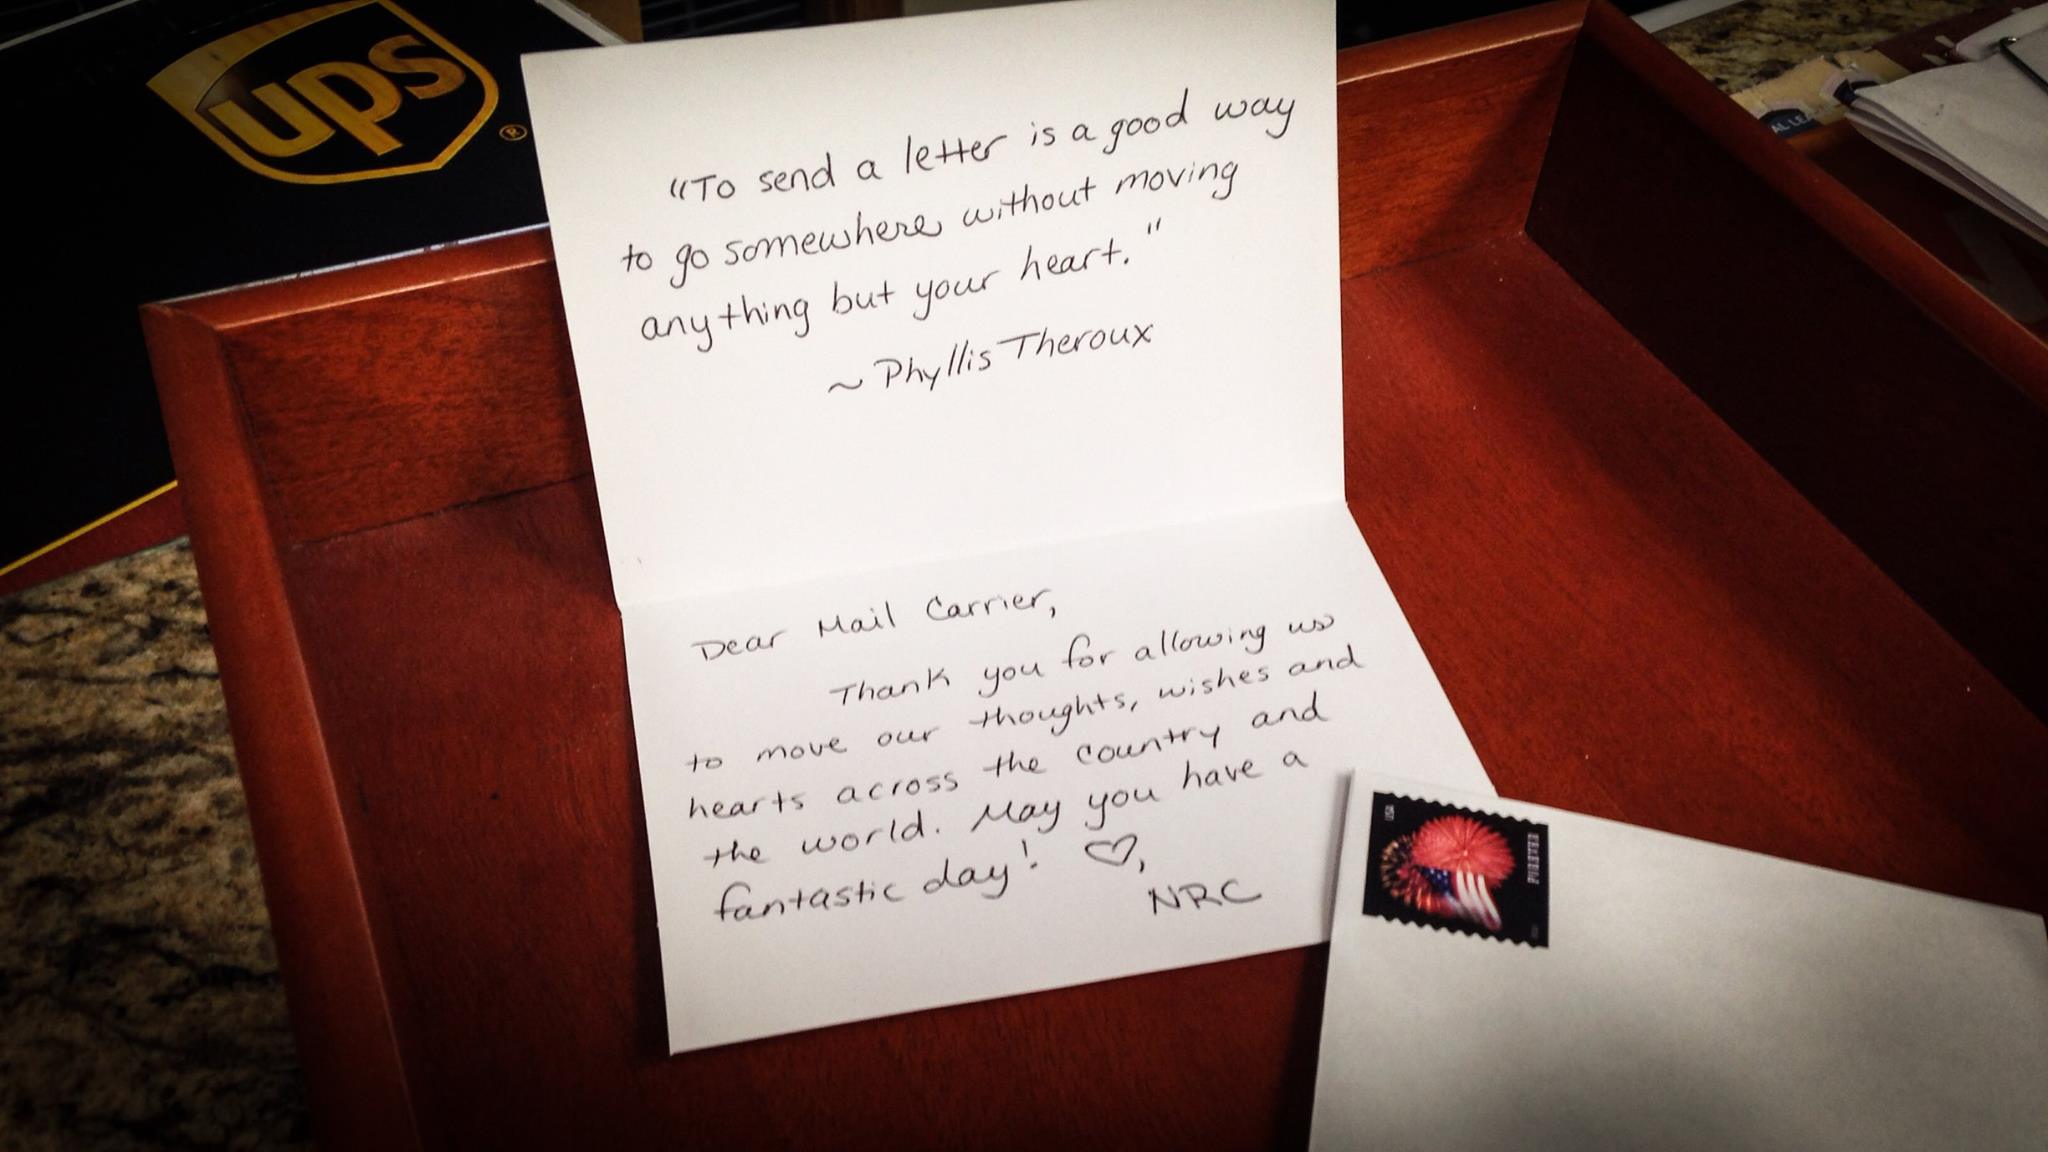 ups
®
"To send a letter is a good way
to go somewhere without moving
anything but your heart."
~ Phyllis Theroux
Dear Mail Carrier,
Thank you for allowing us
to move our thoughts, wishes and
hearts across the country and
the world. May you have a
fantastic day! ♡,
NRC
USA
FOREVER